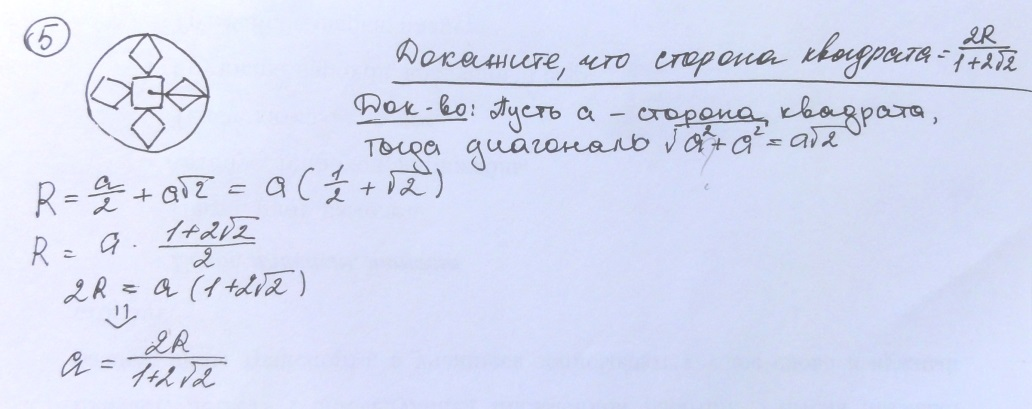 5
Докажите, что сторона квадрата = 2R/(1+2√2)
Док-во: Пусть a – сторона квадрата,
тогда диагональ √(a²+a²) = a√2
R = a/2 + a√2 = a(1/2 + √2)
R = a · (1+2√2)/2
2R = a(1+2√2)
⇓
a = 2R/(1+2√2)